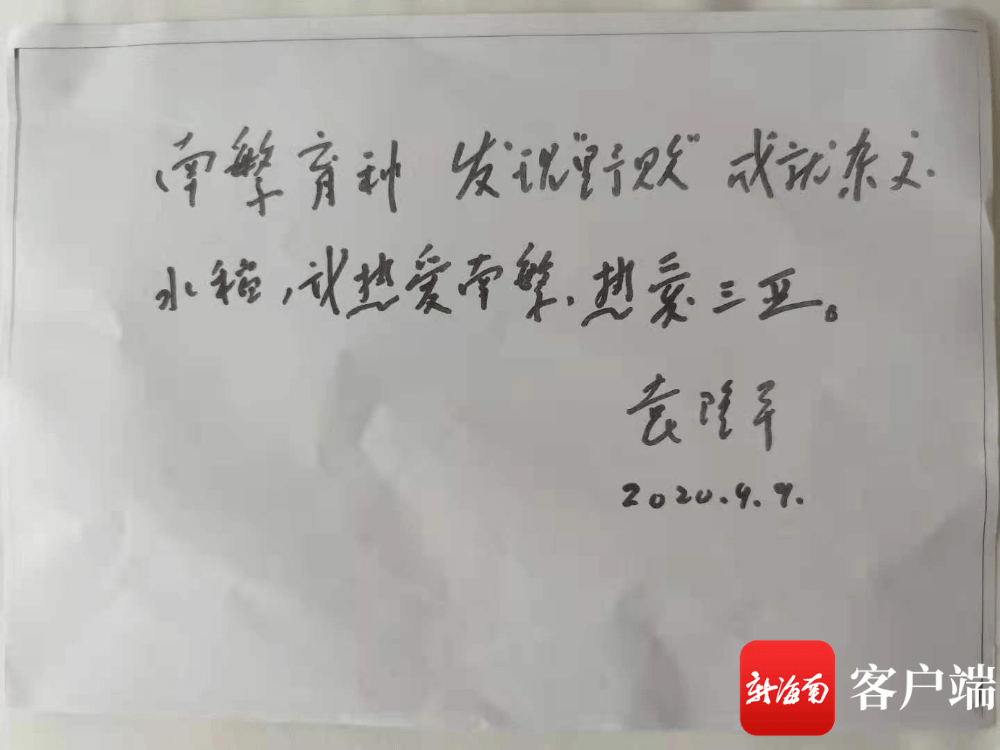 南繁育种 发现"野败" 成就杂交
水稻,我热爱南繁、热爱三亚。
袁隆平
2020.9.9.
新海南 客户端